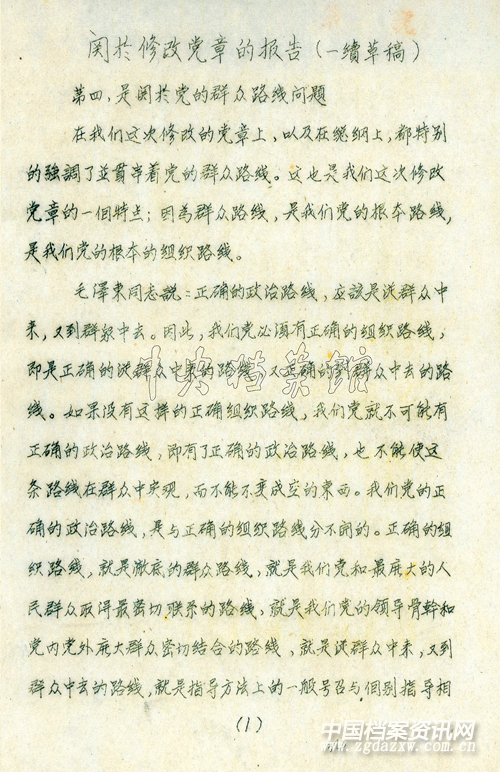 関於修改党章的报告(一續草稿)
第四，是関於党的群众路线问题
在我们这次修改的党章上，以及在總纲上，都特别
的強調了並貫串着党的群众路线。这也是我们这次修改
党章的一個特点；因為群众路线，是我们党的根本路线，
是我们党的根本的组织路线。
毛泽东同志説：正确的政治路线，应該是從群众中
来，又到群众中去。因此，我们党必須有正确的组织路线，
即是正确的從群众中来的路线，又正确的到群众中去的路
线。如果没有这样的正确组织路线，我们党就不可能有
正确的政治路线，即有了正确的政治路线，也不能使这
条路线在群众中实现，而不能不变成空的東西。我们党的正
确的政治路线，是与正确的组织路线分不開的。正确的组
织路线，就是澈底的群众路线，就是我们党和最廣大的人
民群众取得最密切联系的路线，就是我们党的领导骨幹和
党内党外廣大群众密切结合的路线，就是從群众中来，又到
群众中去的路线，就是指导方法上的一般号召与個别指导相
(1)
中央档案馆
中国档案资讯网
www.zgdazxw.com.cn